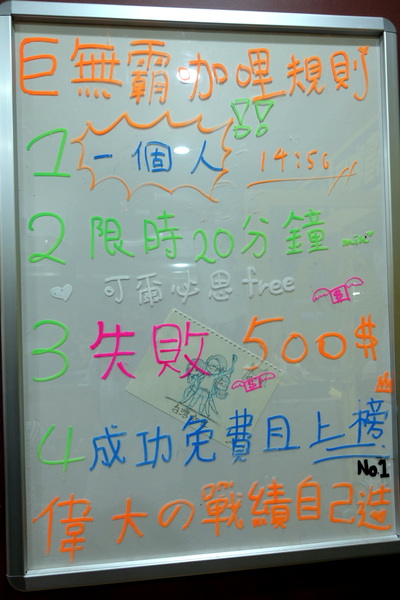 巨無霸咖哩規則
1 一個人!! 14:56
2 限時20分鐘
可爾必思free
3 失敗 500$
4 成功免費且上榜
No.1
偉大の戰績自己造